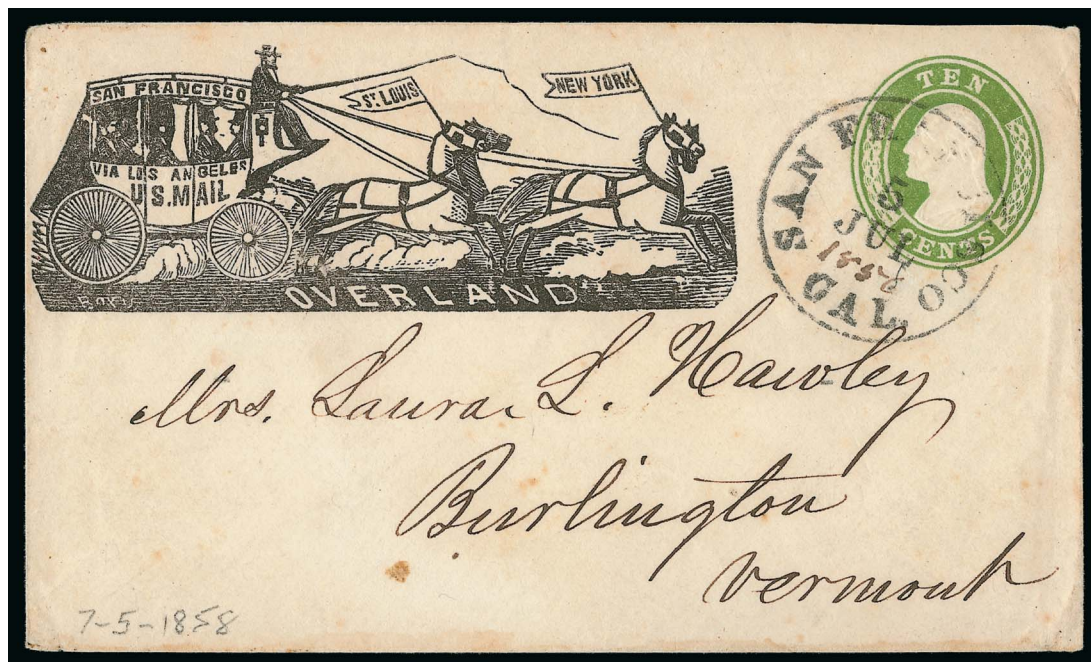 SAN FRANCISCO
VIA LOS ANGELES
U.S. MAIL
ST. LOUIS
NEW YORK
OVERLAND
TEN
CENTS
SAN FRANCISCO
5
JUL
1858
CAL.
Mrs. Laura L. Hawley
Burlington
Vermont
7-5-1858